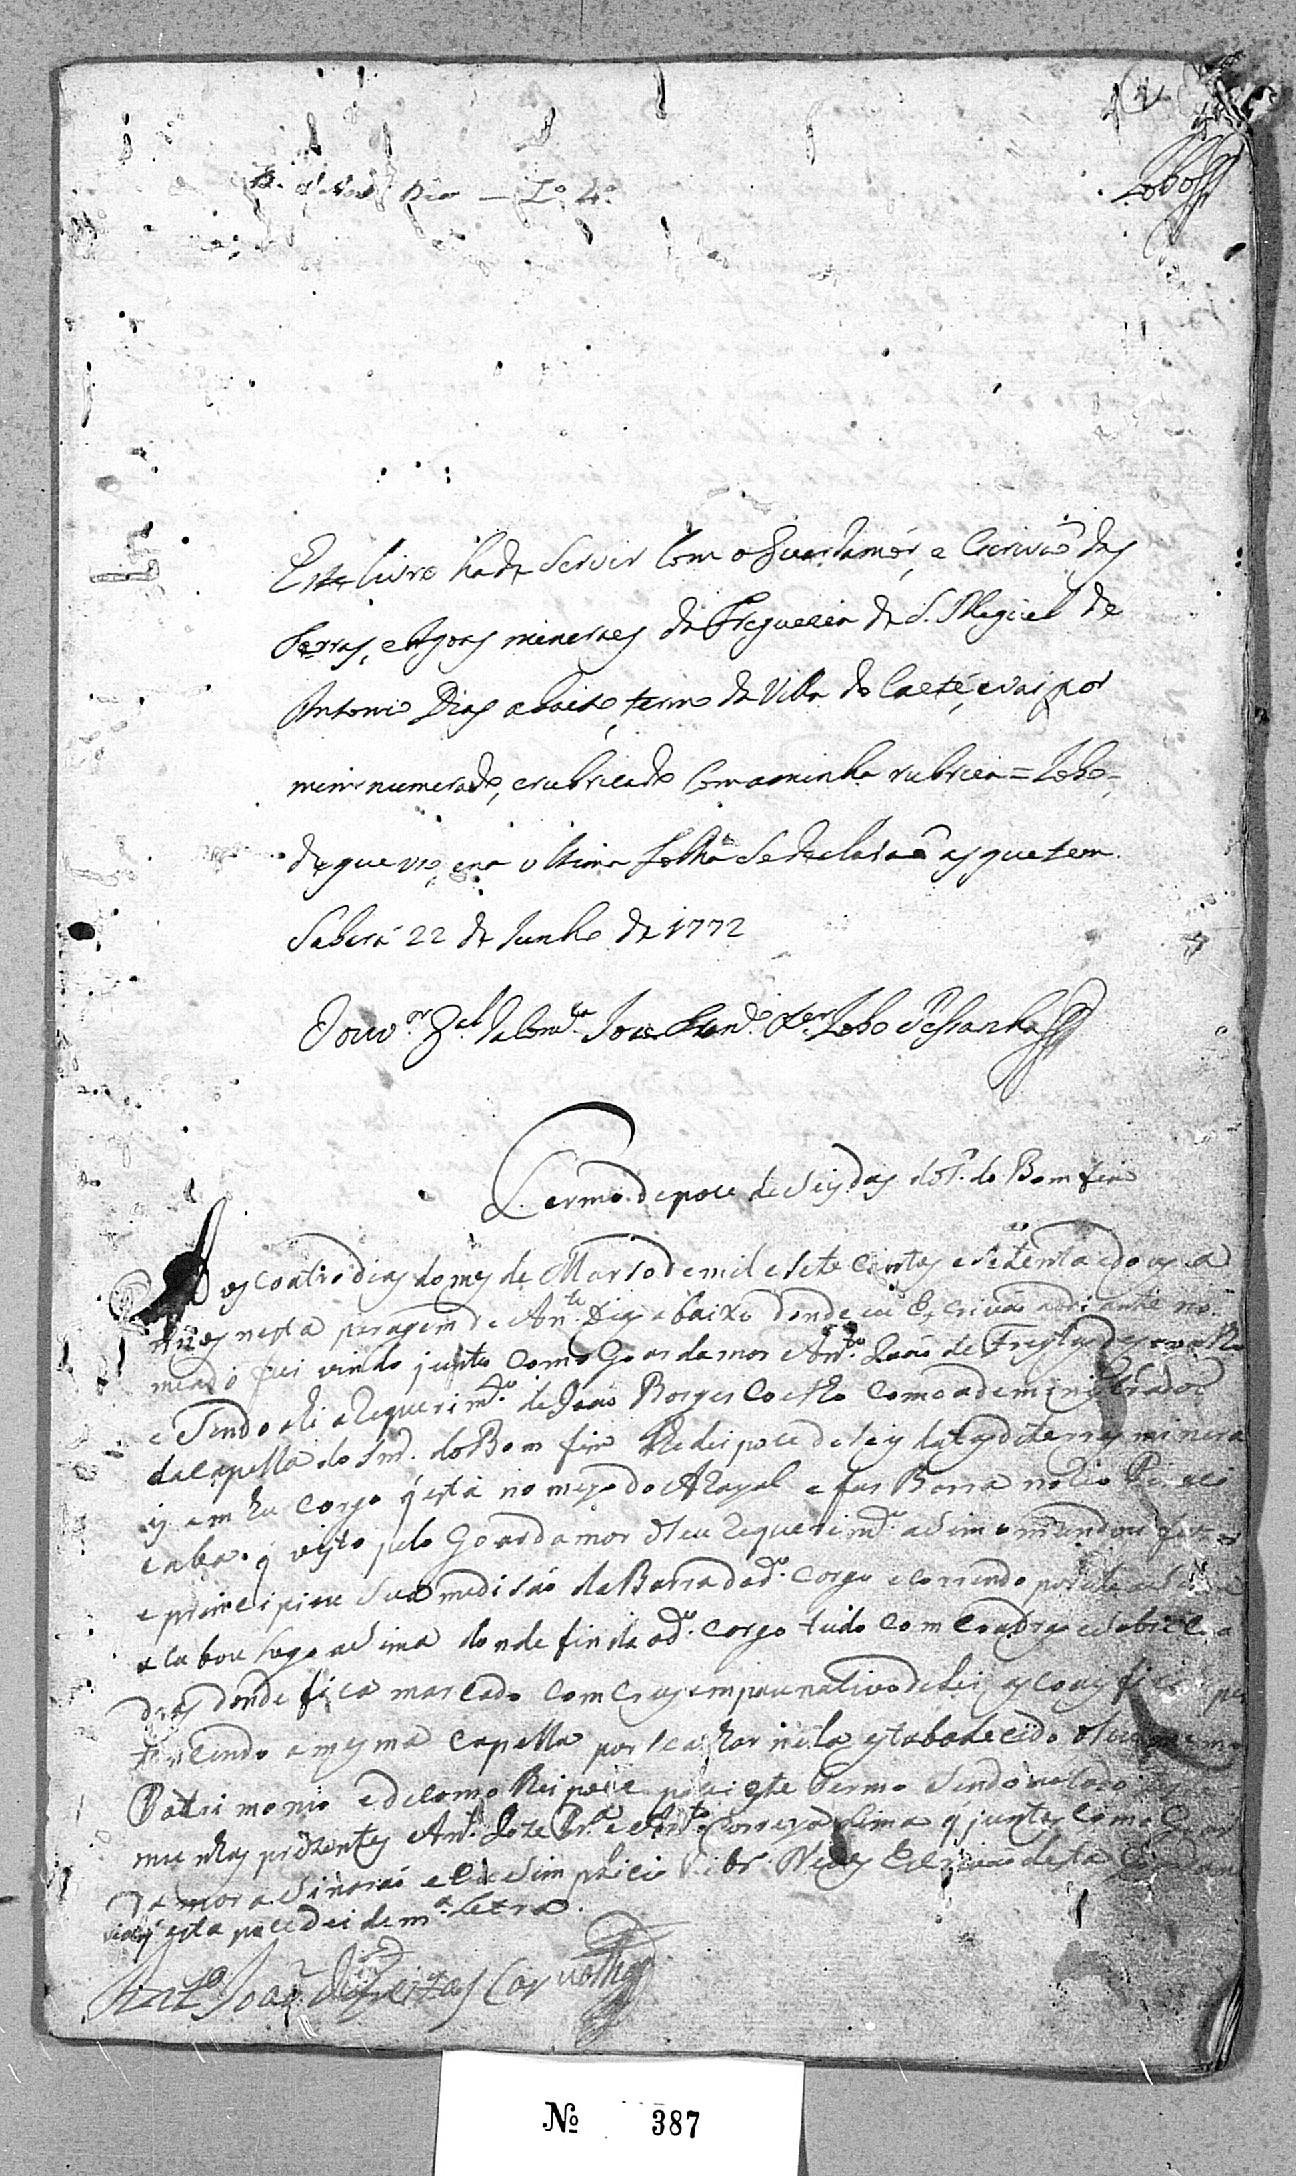 Lobo
Lº 4º
Este livro hade Servir Com o Guardamór, e Escrivaõ das
terras, e Agoas mineraes da Freguezia de S. Miguel de
Antonio Dias abaixo, termo da Villa do Caeté, e vai por
mim numerado, e rubricado Com a minha rubrica = Lobo =
de que uzo, e na ultima folha Se declaraõ as que tem.
Sabará 22 de Junho de 1772
O ouv.or g.al da Com.ca Joze Lobo Pessanha
Termo de poce de Seis das do S.r do Bom fim
Aos coatro dias do mes de Marso de mil e sete centos e setenta e do us a
nesta paragem de An.to Dias abaixo donde eu Escrivaõ adiante no
meado fui vindo junto com o Goardamor An.to Joaõ de Freytas
e Sendo ahi a Requerim.to de Joaõ Borges Coelho como ademenistrador
da Capella do Snr. do Bom fim lhe dei poce de seis datas de terras minera
is em hu corgo q está no meyo do Arayal e fas Barra no Rio Pirasi
caba. q visto pelo Goardamor o Seu Requerim.to asim o mandou
e principiou Sua medisaõ da Barra do d.o Corgo e correndo por ele asima
acabou logo asima donde finda o d.o Corgo tudo com
donde fica marcado com crus em pau nativo de lei as coais
tencendo a mesma Capella por se achar nela estabalecido o Seu
Patrimonio e de como lhe dei poce fis este Termo Sendo
munhas prezentes An.to Joze Pr.a e An.to Correya Lima q juntos com o Goar
damor asinaraõ e Eu Simplicio Rib.r Neves Escrivaõ desta
q esta poce dei de m.a Letra.
Ant.o Joaõ de Freitas Carvalho
Nº 387